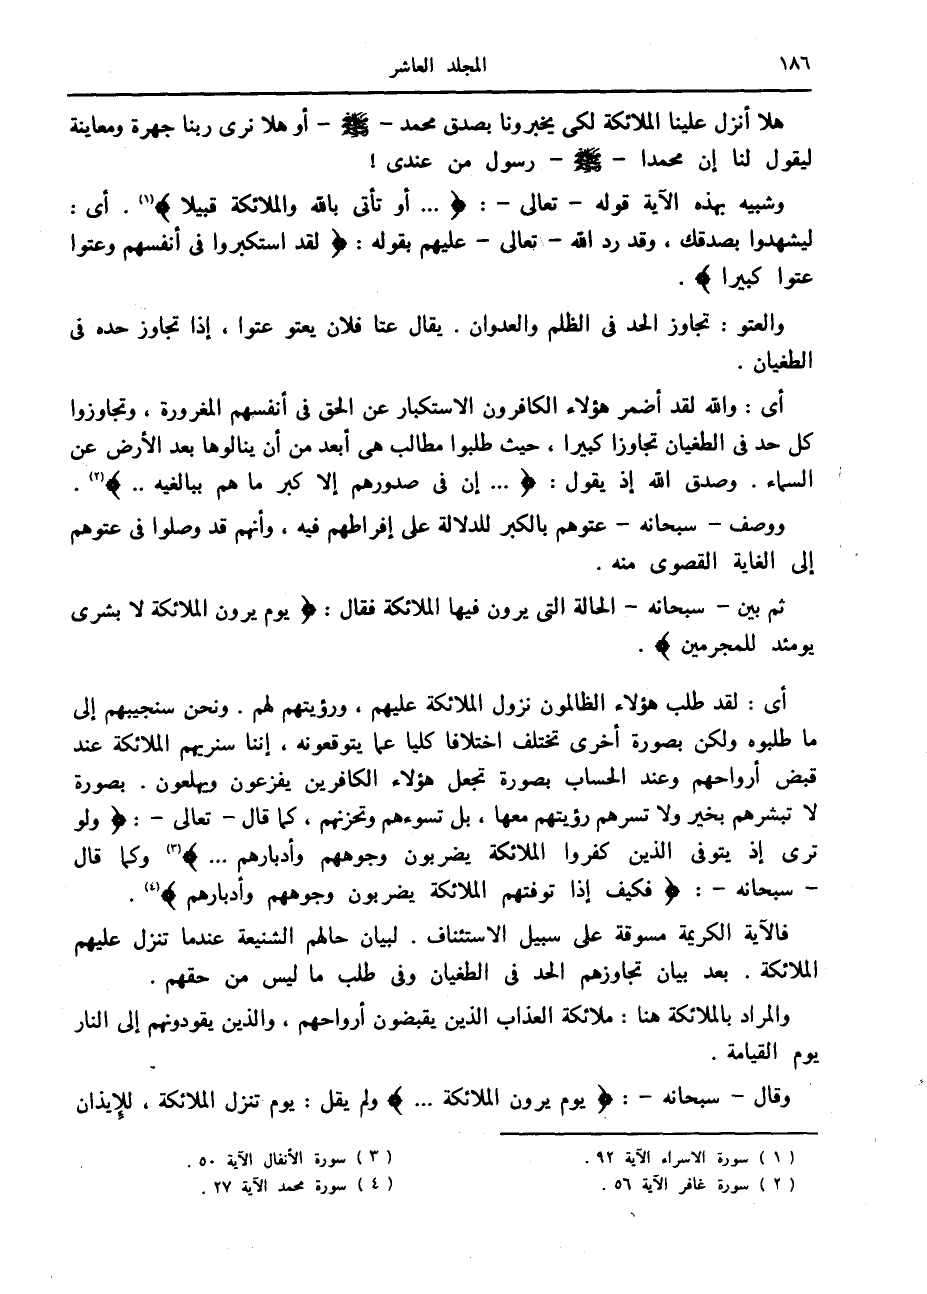 ١٨٦ المجلد العاشر
هلا أنزل علينا الملائكة لكى يخبرونا بصدق محمد - ﷺ - أو هلا نرى ربنا جهرة ومعاينة
ليقول لنا إن محمدا - ﷺ - رسول من عندى !
وشبيه بهذه الآية قوله - تعالى - : ﴿ ... أو تأتى بالله والملائكة قبيلا ﴾(١) . أى :
ليشهدوا بصدقك ، وقد رد الله - تعالى - عليهم بقوله : ﴿ لقد استكبروا فى أنفسهم وعتوا
عتوا كبيرا ﴾ .
والعتو : تجاوز الحد فى الظلم والعدوان . يقال عتا فلان يعتو عتوا ، إذا تجاوز حده فى
الطغيان .
أى : والله لقد أضمر هؤلاء الكافرون الاستكبار عن الحق فى أنفسهم المغرورة ، وتجاوزوا
كل حد فى الطغيان تجاوزا كبيرا ، حيث طلبوا مطالب هى أبعد من أن ينالوها بعد الأرض عن
السماء . وصدق الله إذ يقول : ﴿ ... إن فى صدورهم إلا كبر ما هم ببالغيه .. ﴾(٢) .
ووصف - سبحانه - عتوهم بالكبر للدلالة على إفراطهم فيه ، وأنهم قد وصلوا فى عتوهم
إلى الغاية القصوى منه .
ثم بين - سبحانه - الحالة التى يرون فيها الملائكة فقال : ﴿ يوم يرون الملائكة لا بشرى
يومئذ للمجرمين ﴾ .
أى : لقد طلب هؤلاء الظالمون نزول الملائكة عليهم ، ورؤيتهم لهم . ونحن سنجيبهم إلى
ما طلبوه ولكن بصورة أخرى تختلف اختلافا كليا عما يتوقعونه ، إننا سنريهم الملائكة عند
قبض أرواحهم وعند الحساب بصورة تجعل هؤلاء الكافرين يفزعون ويهلعون . بصورة
لا تبشرهم بخير ولا تسرهم رؤيتهم معها ، بل تسوءهم وتحزنهم ، كما قال - تعالى - : ﴿ ولو
ترى إذ يتوفى الذين كفروا الملائكة يضربون وجوههم وأدبارهم ... ﴾(٣) وكما قال
- سبحانه - : ﴿ فكيف إذا توفتهم الملائكة يضربون وجوههم وأدبارهم ﴾(٤) .
فالآية الكريمة مسوقة على سبيل الاستئناف . لبيان حالهم الشنيعة عندما تنزل عليهم
الملائكة . بعد بيان تجاوزهم الحد فى الطغيان وفى طلب ما ليس من حقهم .
والمراد بالملائكة هنا : ملائكة العذاب الذين يقبضون أرواحهم ، والذين يقودونهم إلى النار
يوم القيامة .
وقال - سبحانه - : ﴿ يوم يرون الملائكة ... ﴾ ولم يقل : يوم تنزل الملائكة ، للإيذان
( ١ ) سورة الاسراء الآية ٩٢ .
( ٢ ) سورة غافر الآية ٥٦ .
( ٣ ) سورة الأنفال الآية ٥٠ .
( ٤ ) سورة محمد الآية ٢٧ .